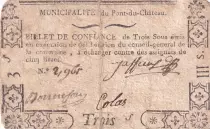 MUNICIPALITÉ du Pont-du-Château.
BILLET DE CONFIANCE, de Trois Sous émis
en exécution de délibération du conseil général de
la commune, à échanger contre des assignats de
cinq livres.
N.° 2,965
Colas
Trois S
III S